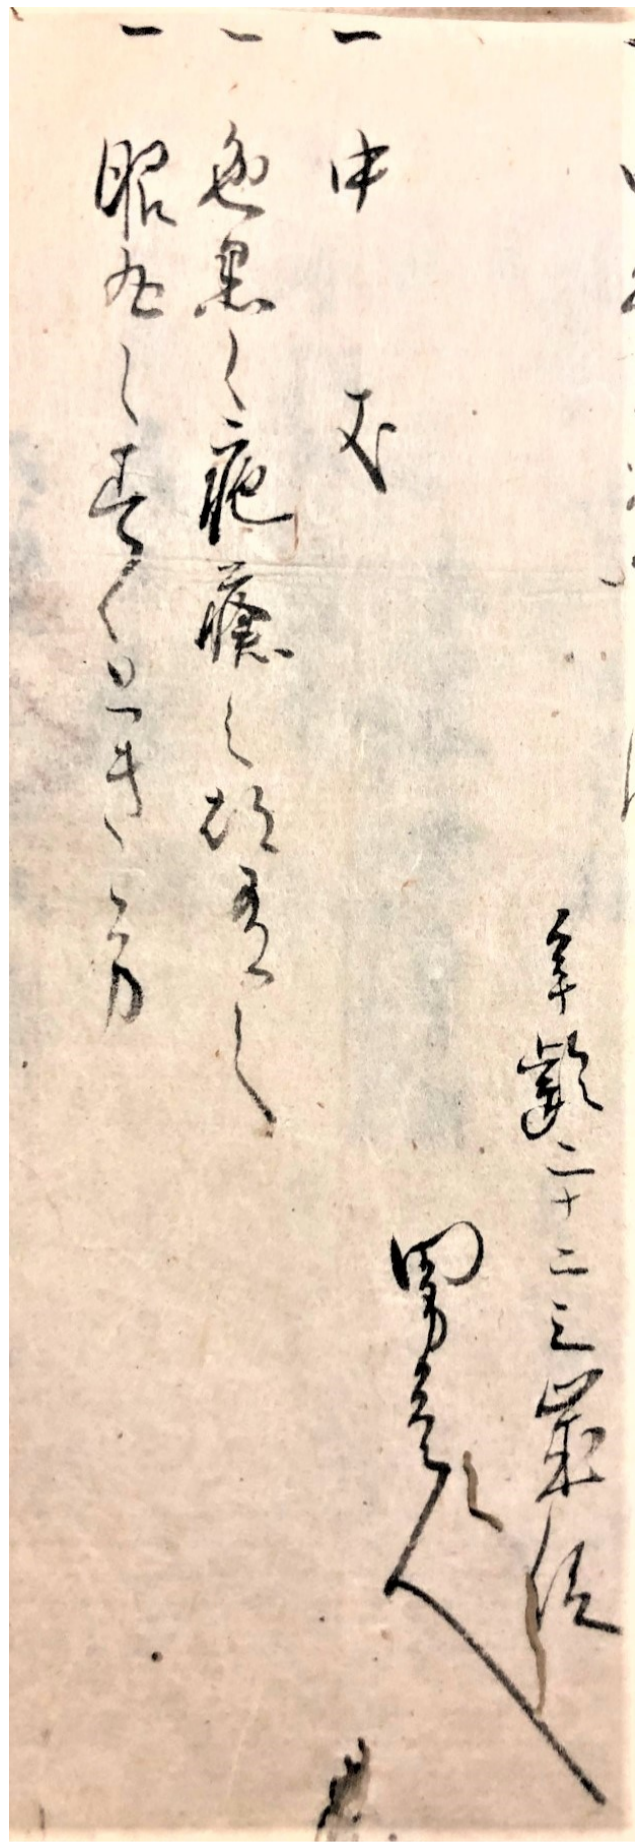 年齢二十二三歳位
男壱人
一 中丈
一 色黒く疱瘡之跡有之
一 眼丸くするどき方